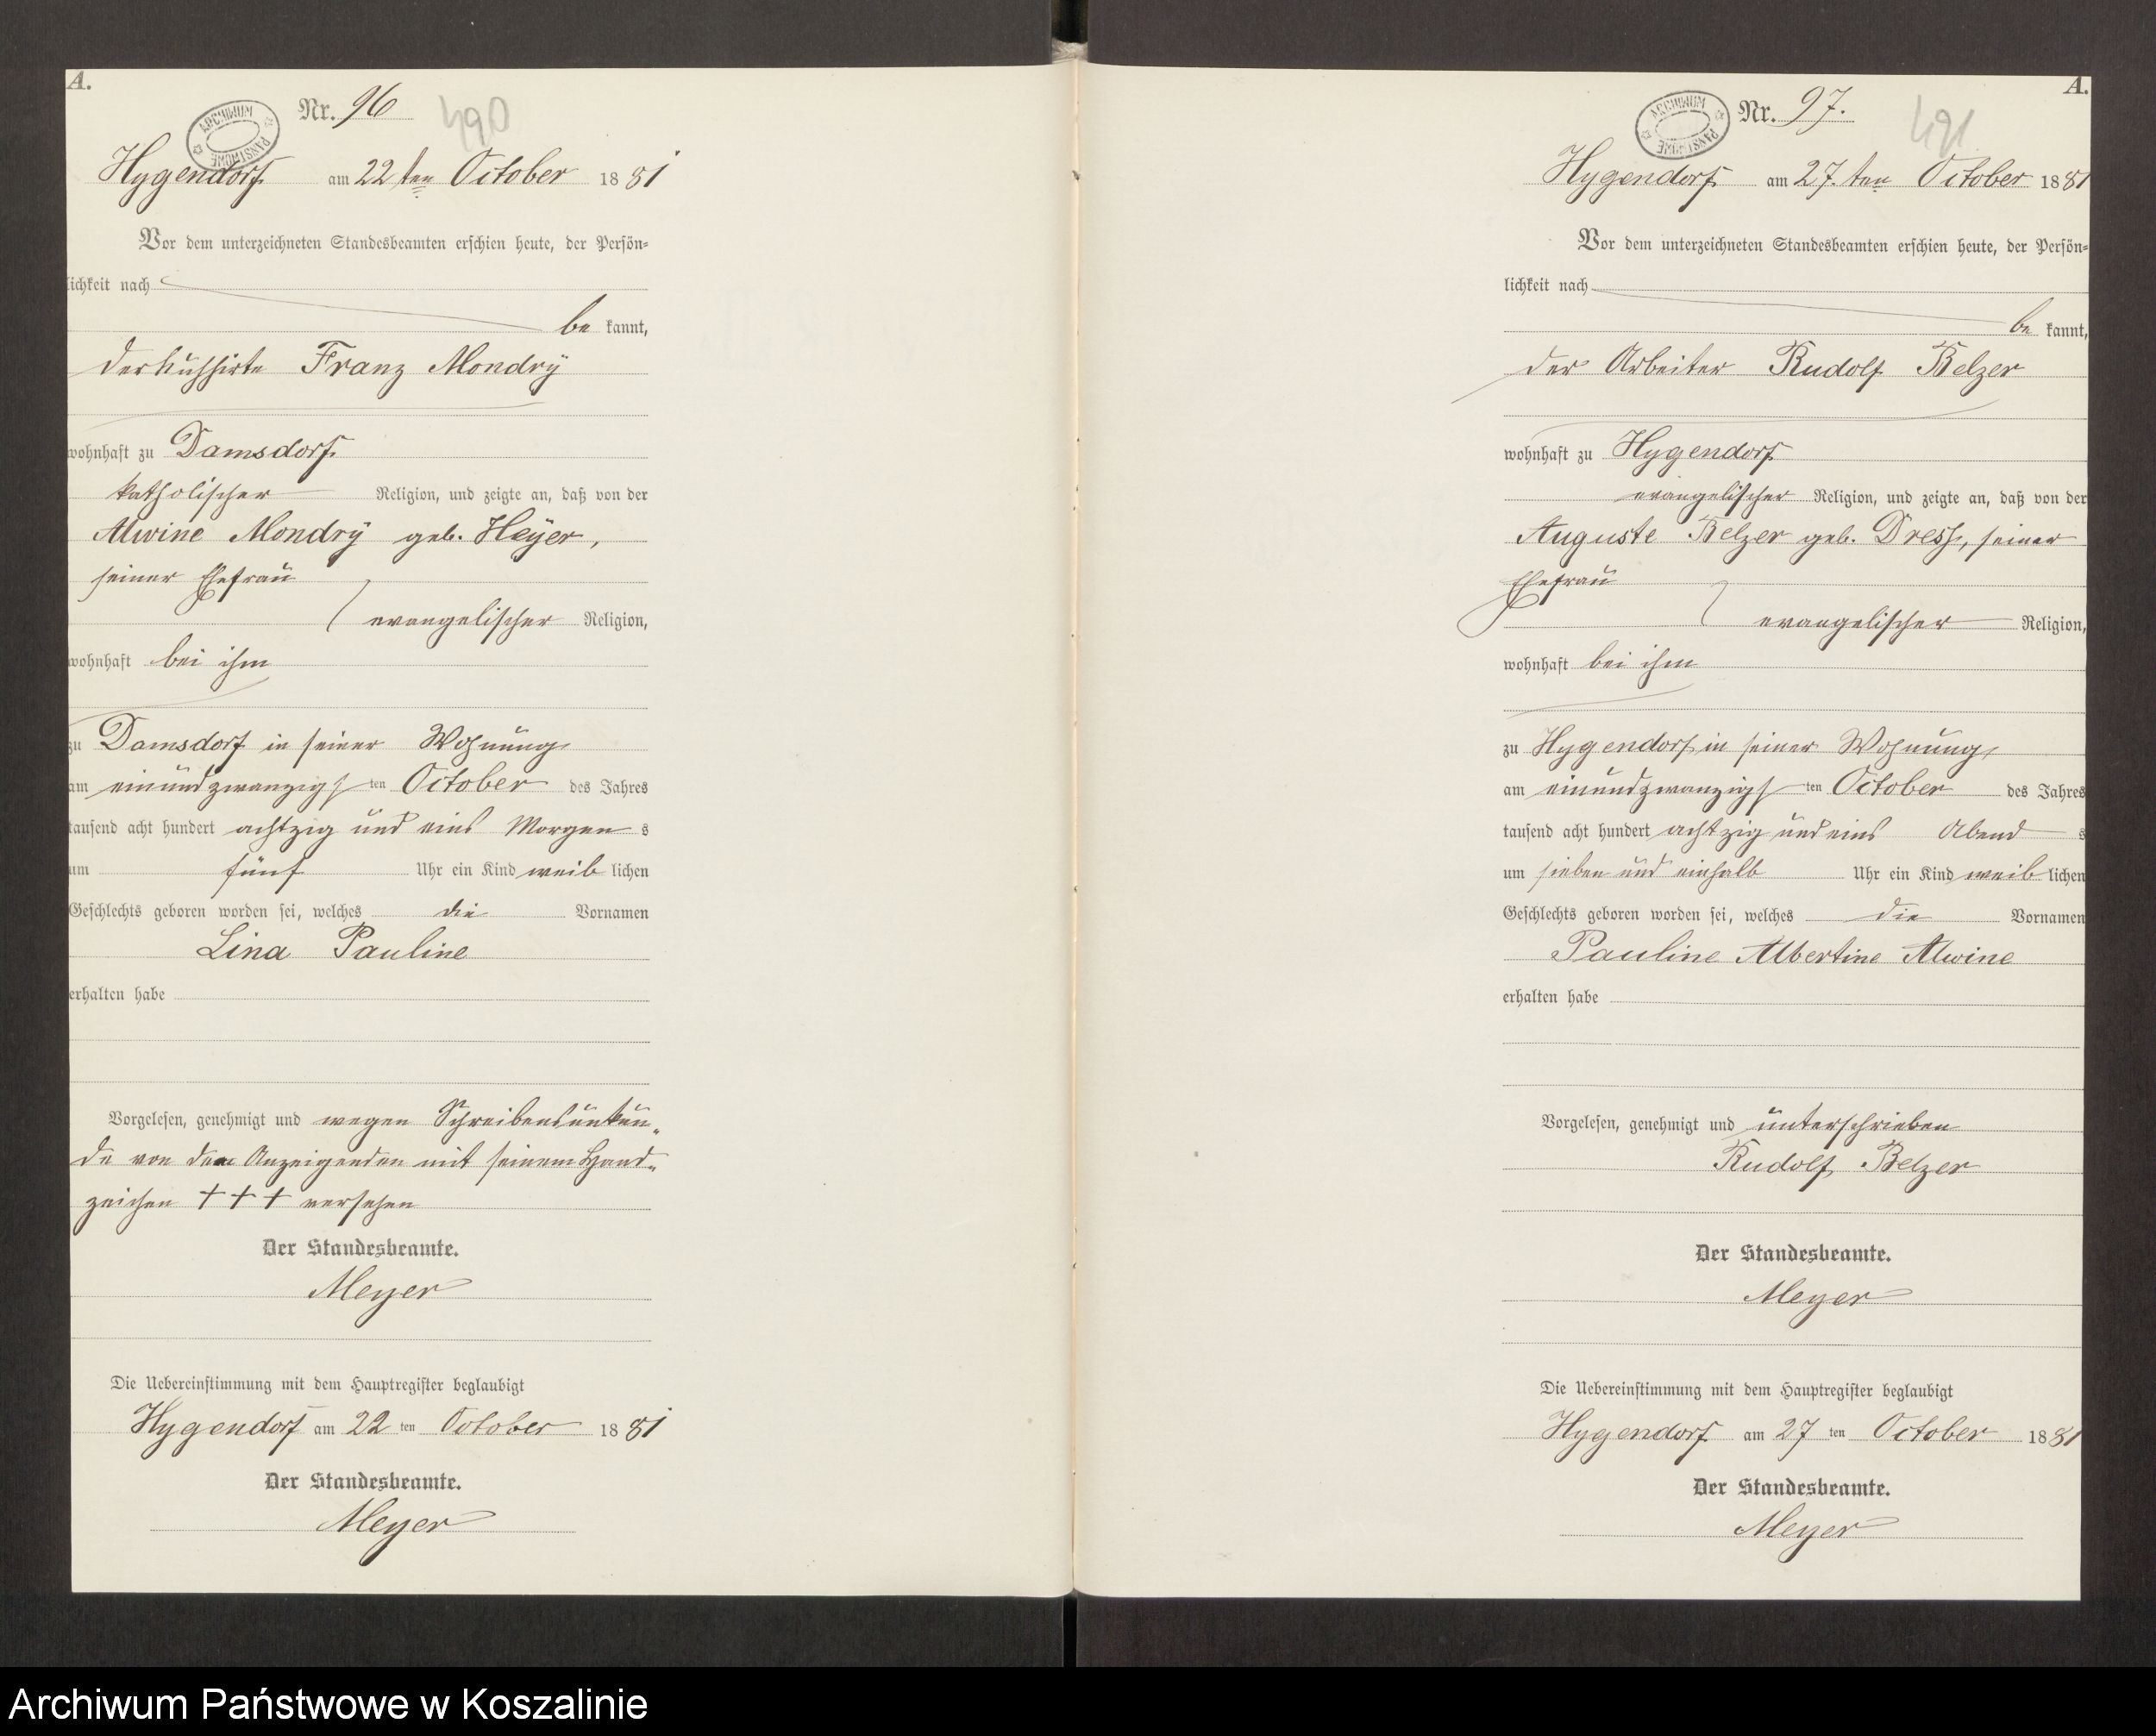 A.
Nr. 96
490
ARCHIWUM PAŃSTWOWE
Hygendorf am 22 ten October 1881
Vor dem unterzeichneten Standesbeamten erschien heute, der Persön-
lichkeit nach
be kannt,
der Kuhhirte Franz Mondry
wohnhaft zu Damsdorf
katholischer Religion, und zeigte an, daß von der
Alwine Mondry geb. Heyer,
seiner Ehefrau
evangelischer Religion,
wohnhaft bei ihm
zu Damsdorf in seiner Wohnung
am einundzwanzigsten October des Jahres
tausend acht hundert achtzig und eins Morgens
um fünf Uhr ein Kind weiblichen
Geschlechts geboren worden sei, welches die Vornamen
Lina Pauline
erhalten habe
Vorgelesen, genehmigt und wegen Schreibensunkun-
de von dem Anzeigenden mit seinem Hand-
zeichen +++ versehen
Der Standesbeamte.
Meyer
Die Uebereinstimmung mit dem Hauptregister beglaubigt
Hygendorf am 22 ten October 1881
Der Standesbeamte.
Meyer
A.
Nr. 97.
491
ARCHIWUM PAŃSTWOWE
Hygendorf am 27. ten October 1881
Vor dem unterzeichneten Standesbeamten erschien heute, der Persön-
lichkeit nach
be kannt,
der Arbeiter Rudolf Belzer
wohnhaft zu Hygendorf
evangelischer Religion, und zeigte an, daß von der
Auguste Belzer geb. Dresh, seiner
Ehefrau
evangelischer Religion,
wohnhaft bei ihm
zu Hygendorf in seiner Wohnung
am einundzwanzigsten October des Jahres
tausend acht hundert achtzig und eins Abends
um sieben und einhalb Uhr ein Kind weiblichen
Geschlechts geboren worden sei, welches die Vornamen
Pauline Albertine Alwine
erhalten habe
Vorgelesen, genehmigt und unterschrieben
Rudolf Belzer
Der Standesbeamte.
Meyer
Die Uebereinstimmung mit dem Hauptregister beglaubigt
Hygendorf am 27 ten October 1881
Der Standesbeamte.
Meyer
Archiwum Państwowe w Koszalinie